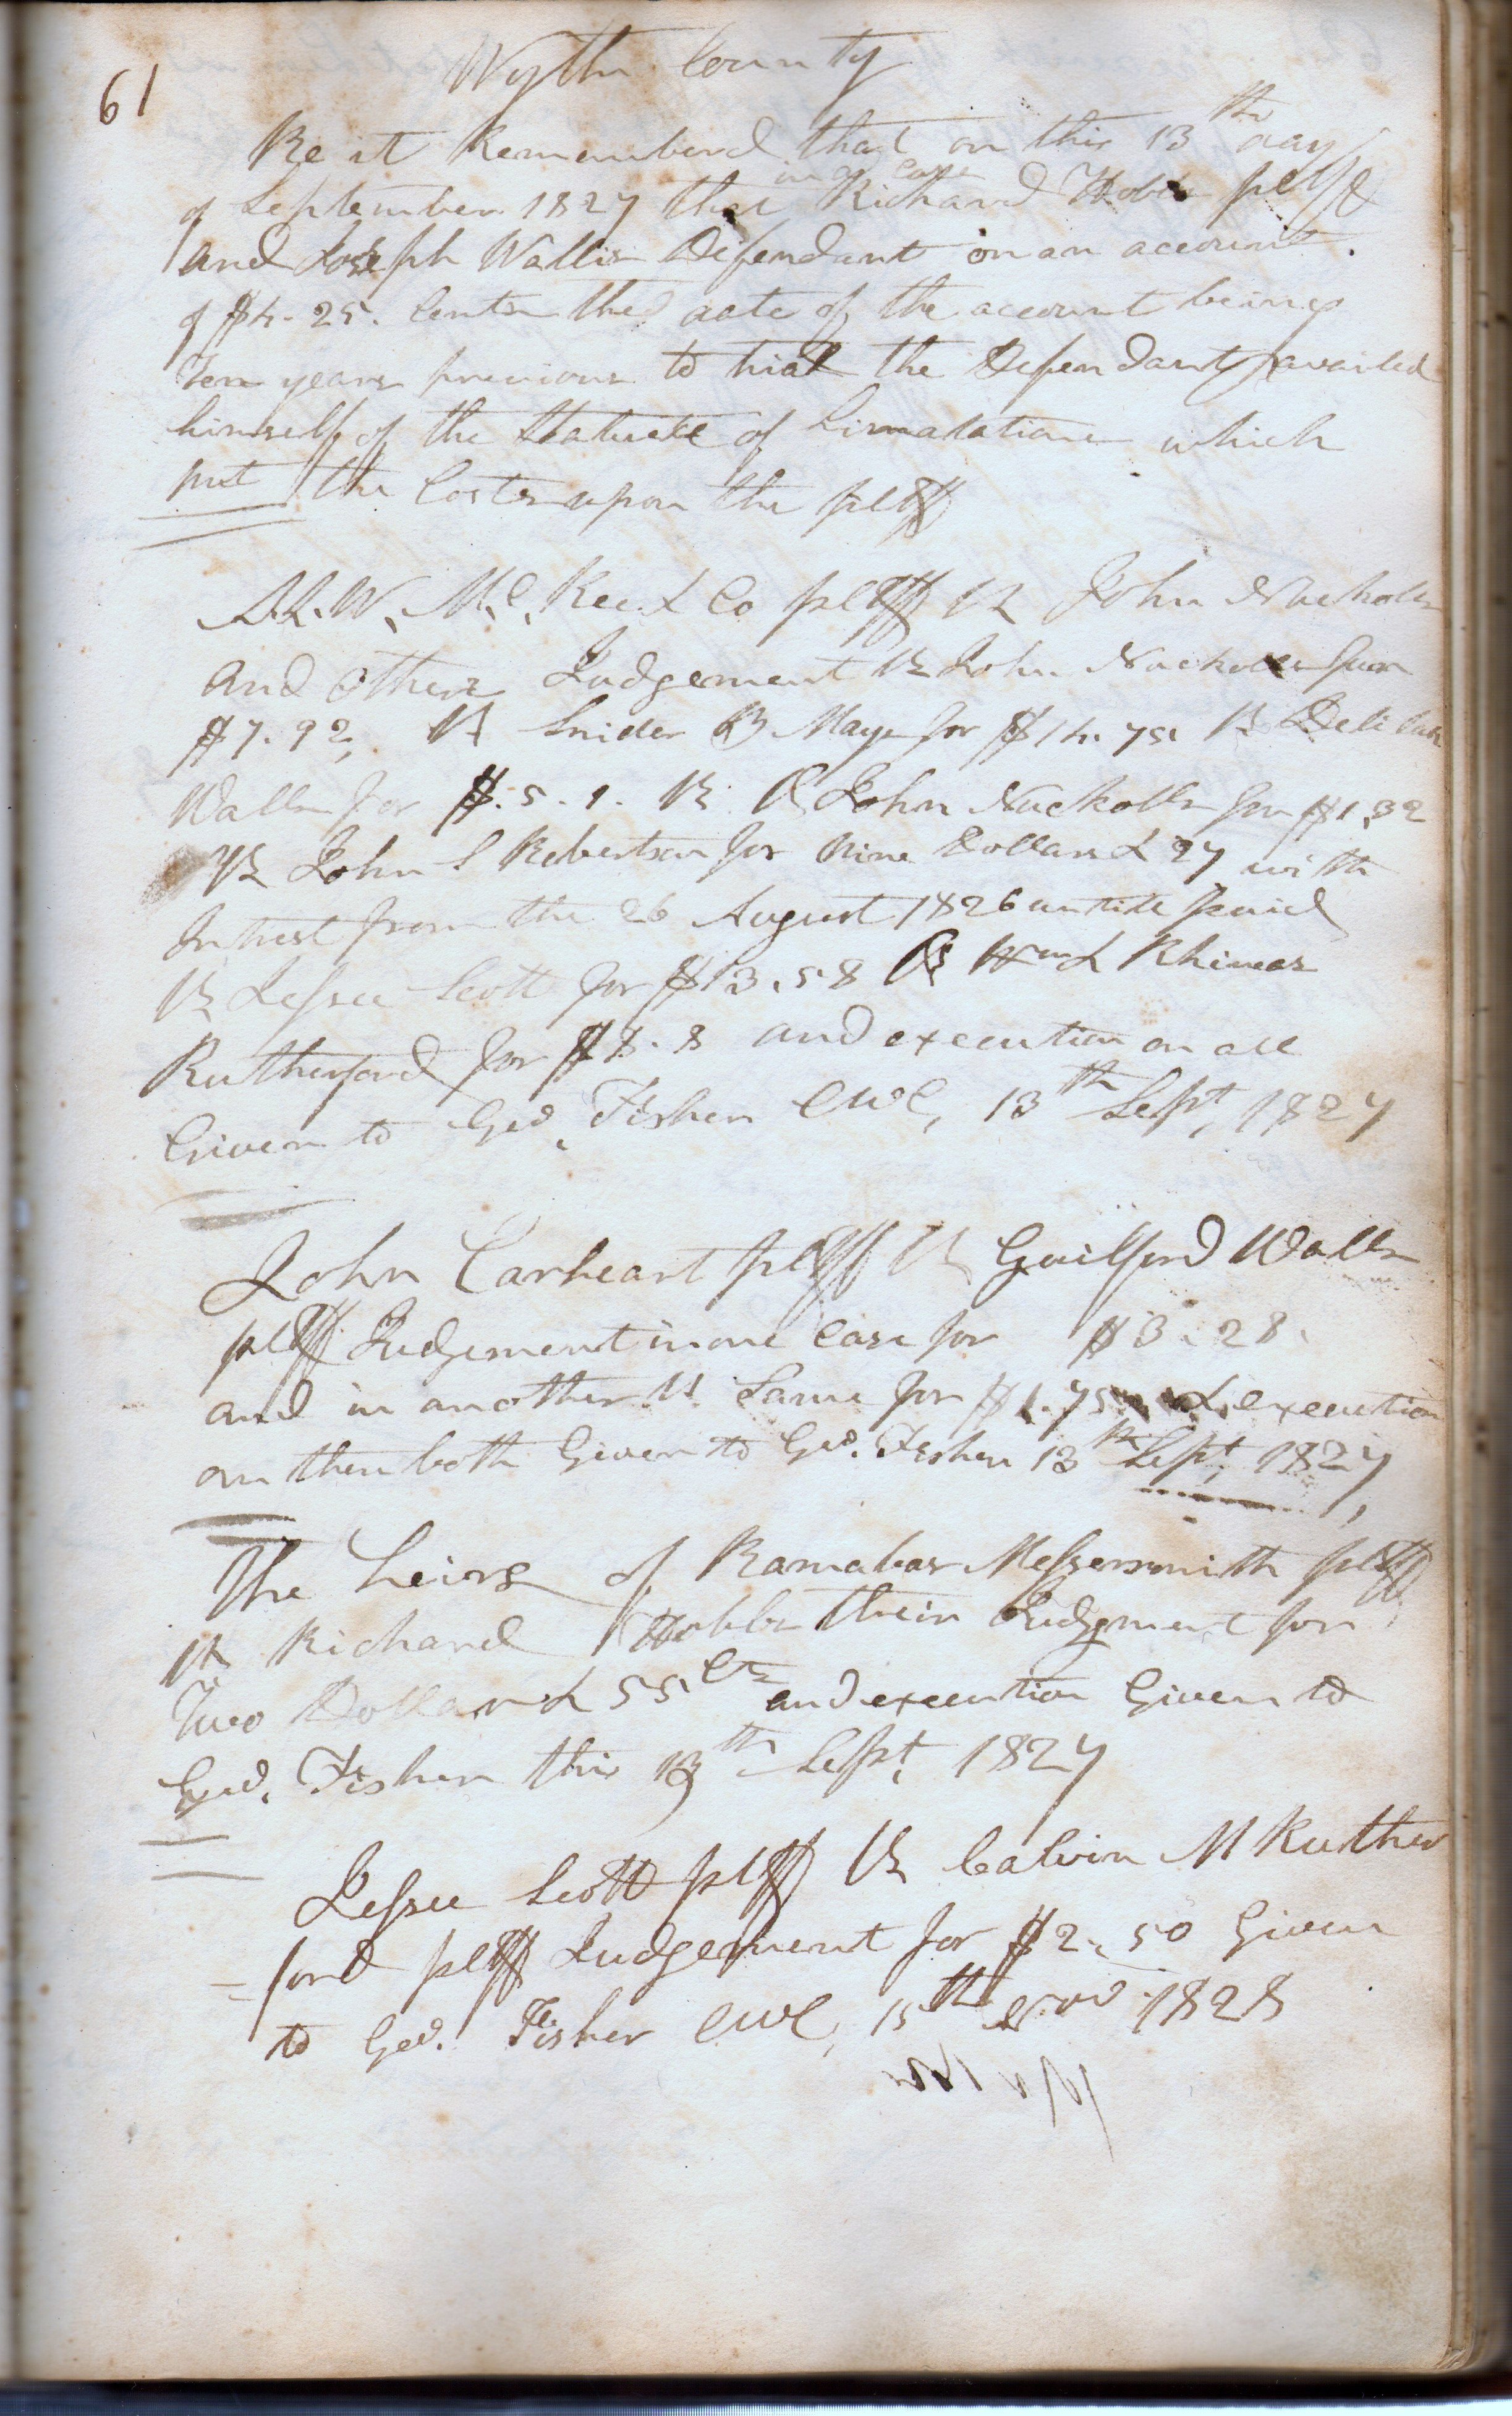 61
Wythe County
Be it Rememberd that on this 13th day
in a case
of September 1827 that Richard Hobbs pltff
and Joseph Wallis Defendant on an account.
of $4.25. Cents the date of the account being
Ten years previous to trial the Defendant availed
himself of the Statute of Limatations which
put the Costs upon the pltff
W. Mc.Kee & Co pltff vs John Nuckolls
and others Judgement vs John Nuckolls
$7.92, vs Snider B Mays for $14.75. vs
Walls for $.5.1. vs John Nuckolls for $1,32
vs John S Robertson for Nine Dollars & 27 with
Intrest from the 26 August 1826 untill paid
vs Jessee Scott for $13.58 vs Wm & Rhineas
Rutherford for $8.8 and execution on all
Given to Geo. Fisher CWC, 13th Sept, 1827
John Carheart pltff vs Guilford Walls
pltff Judgement in one Case for $3.28.
and in another vs Same for $1.75 & execution
on them both Given to Geo. Fisher 13th Sept, 1827,
The heirs of Barnabas Messersmith pltff
vs Richard Hobbs their Judgment for
Two Dollars & 55 Cts and execution Given to
Geo. Fisher this 13th Sept, 1827
Jessee Scott pltff vs Calvin M Ruther
=ford pltff Judgement for $2.50 Given
to Geo. Fisher CWC, 15th Nov 1828